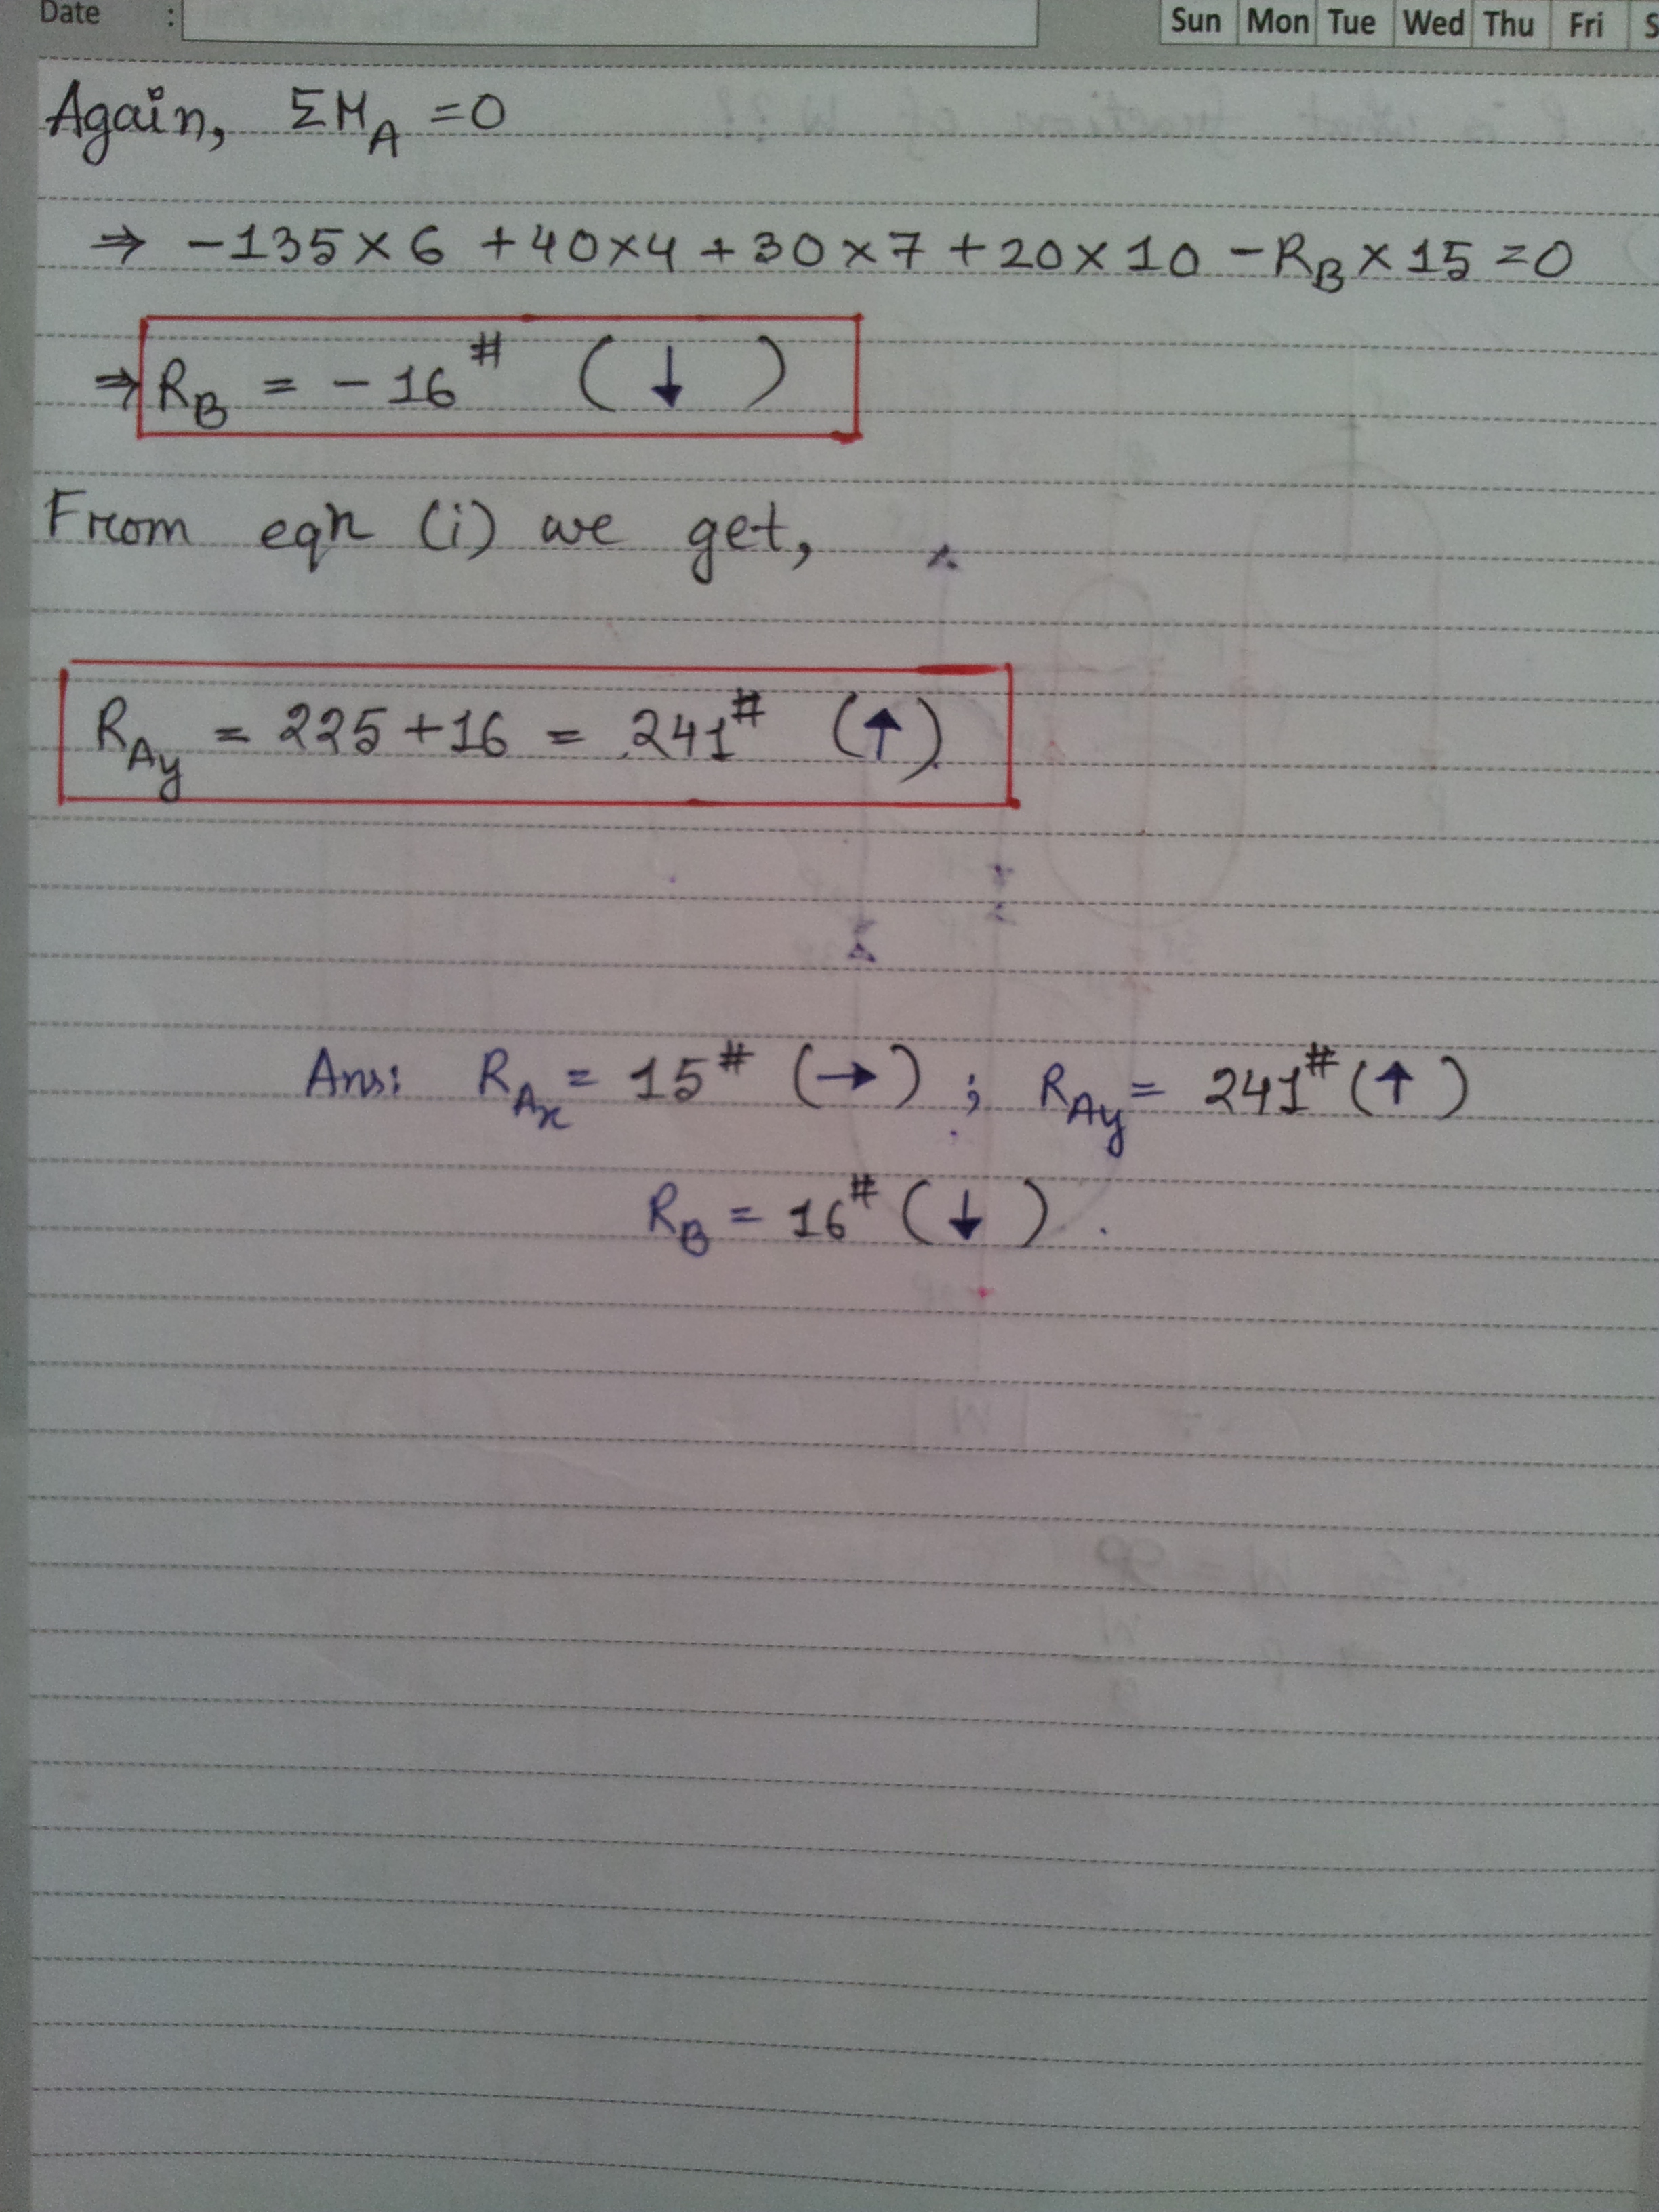 Date :
Sun Mon Tue Wed Thu Fri S
Again, ΣM_A = 0
⇒ -135×6 +40×4 +30×7 +20×10 -R_B×15 =0
⇒ R_B = -16^# (↓)
From eqn (i) we get,
R_Ay = 225+16 = 241^# (↑)
Ans: R_Ax = 15^# (→) ; R_Ay = 241^# (↑)
R_B = 16^# (↓).